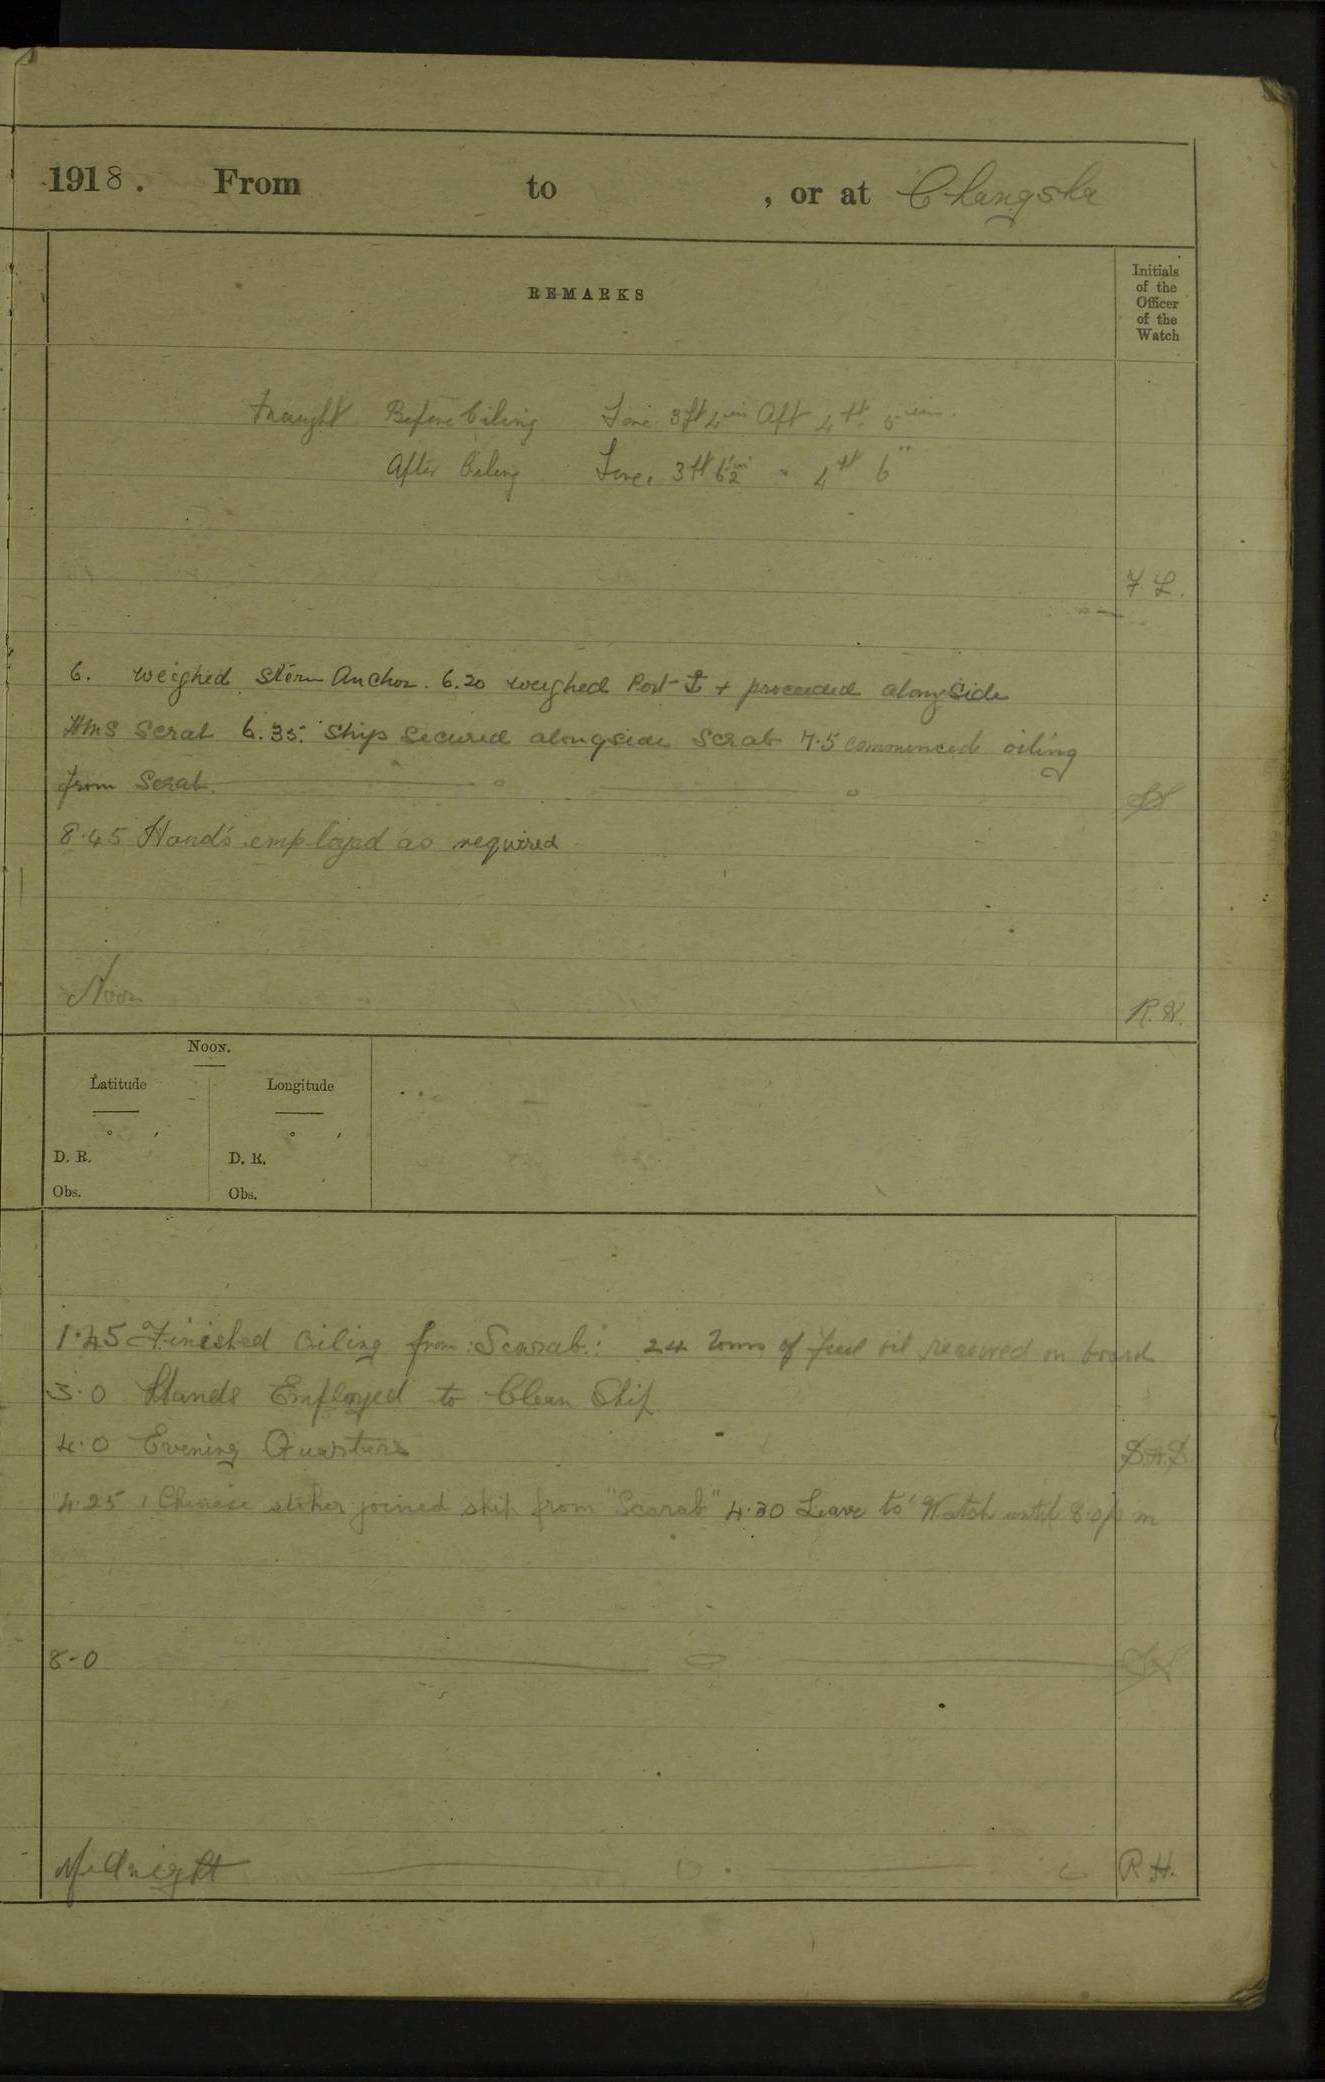 1918. From to , or at Changsha
REMARKS
Initials
of the
Officer
of the
Watch
Draught Before Oiling Fore 3ft 4in Aft 4ft 5in.
After Oiling Fore. 3ft 6½in " 4ft 6"
F. L.
6. weighed Stern Anchor. 6.20 weighed Port ⚓ + proceeded alongside
HMS Scrab 6.35. Ship Secured alongside Scrab 7.5 commenced oiling
from Scrab.
8.45 Hands employed as required
Noon
R.H.
NOON.
Latitude Longitude
° ′ ° ′
D. R. D. R.
Obs. Obs.
1.45 Finished Oiling from :Scarab: 24 Tons of fuel oil received on board
3.0 Hands Employed to Clean Ship
4.0 Evening Quarters
4.25 1 Chinese stoker joined ship from "Scarab" 4.30 Leave to Watch until 8.0 p m
8-0
Midnight
R H.